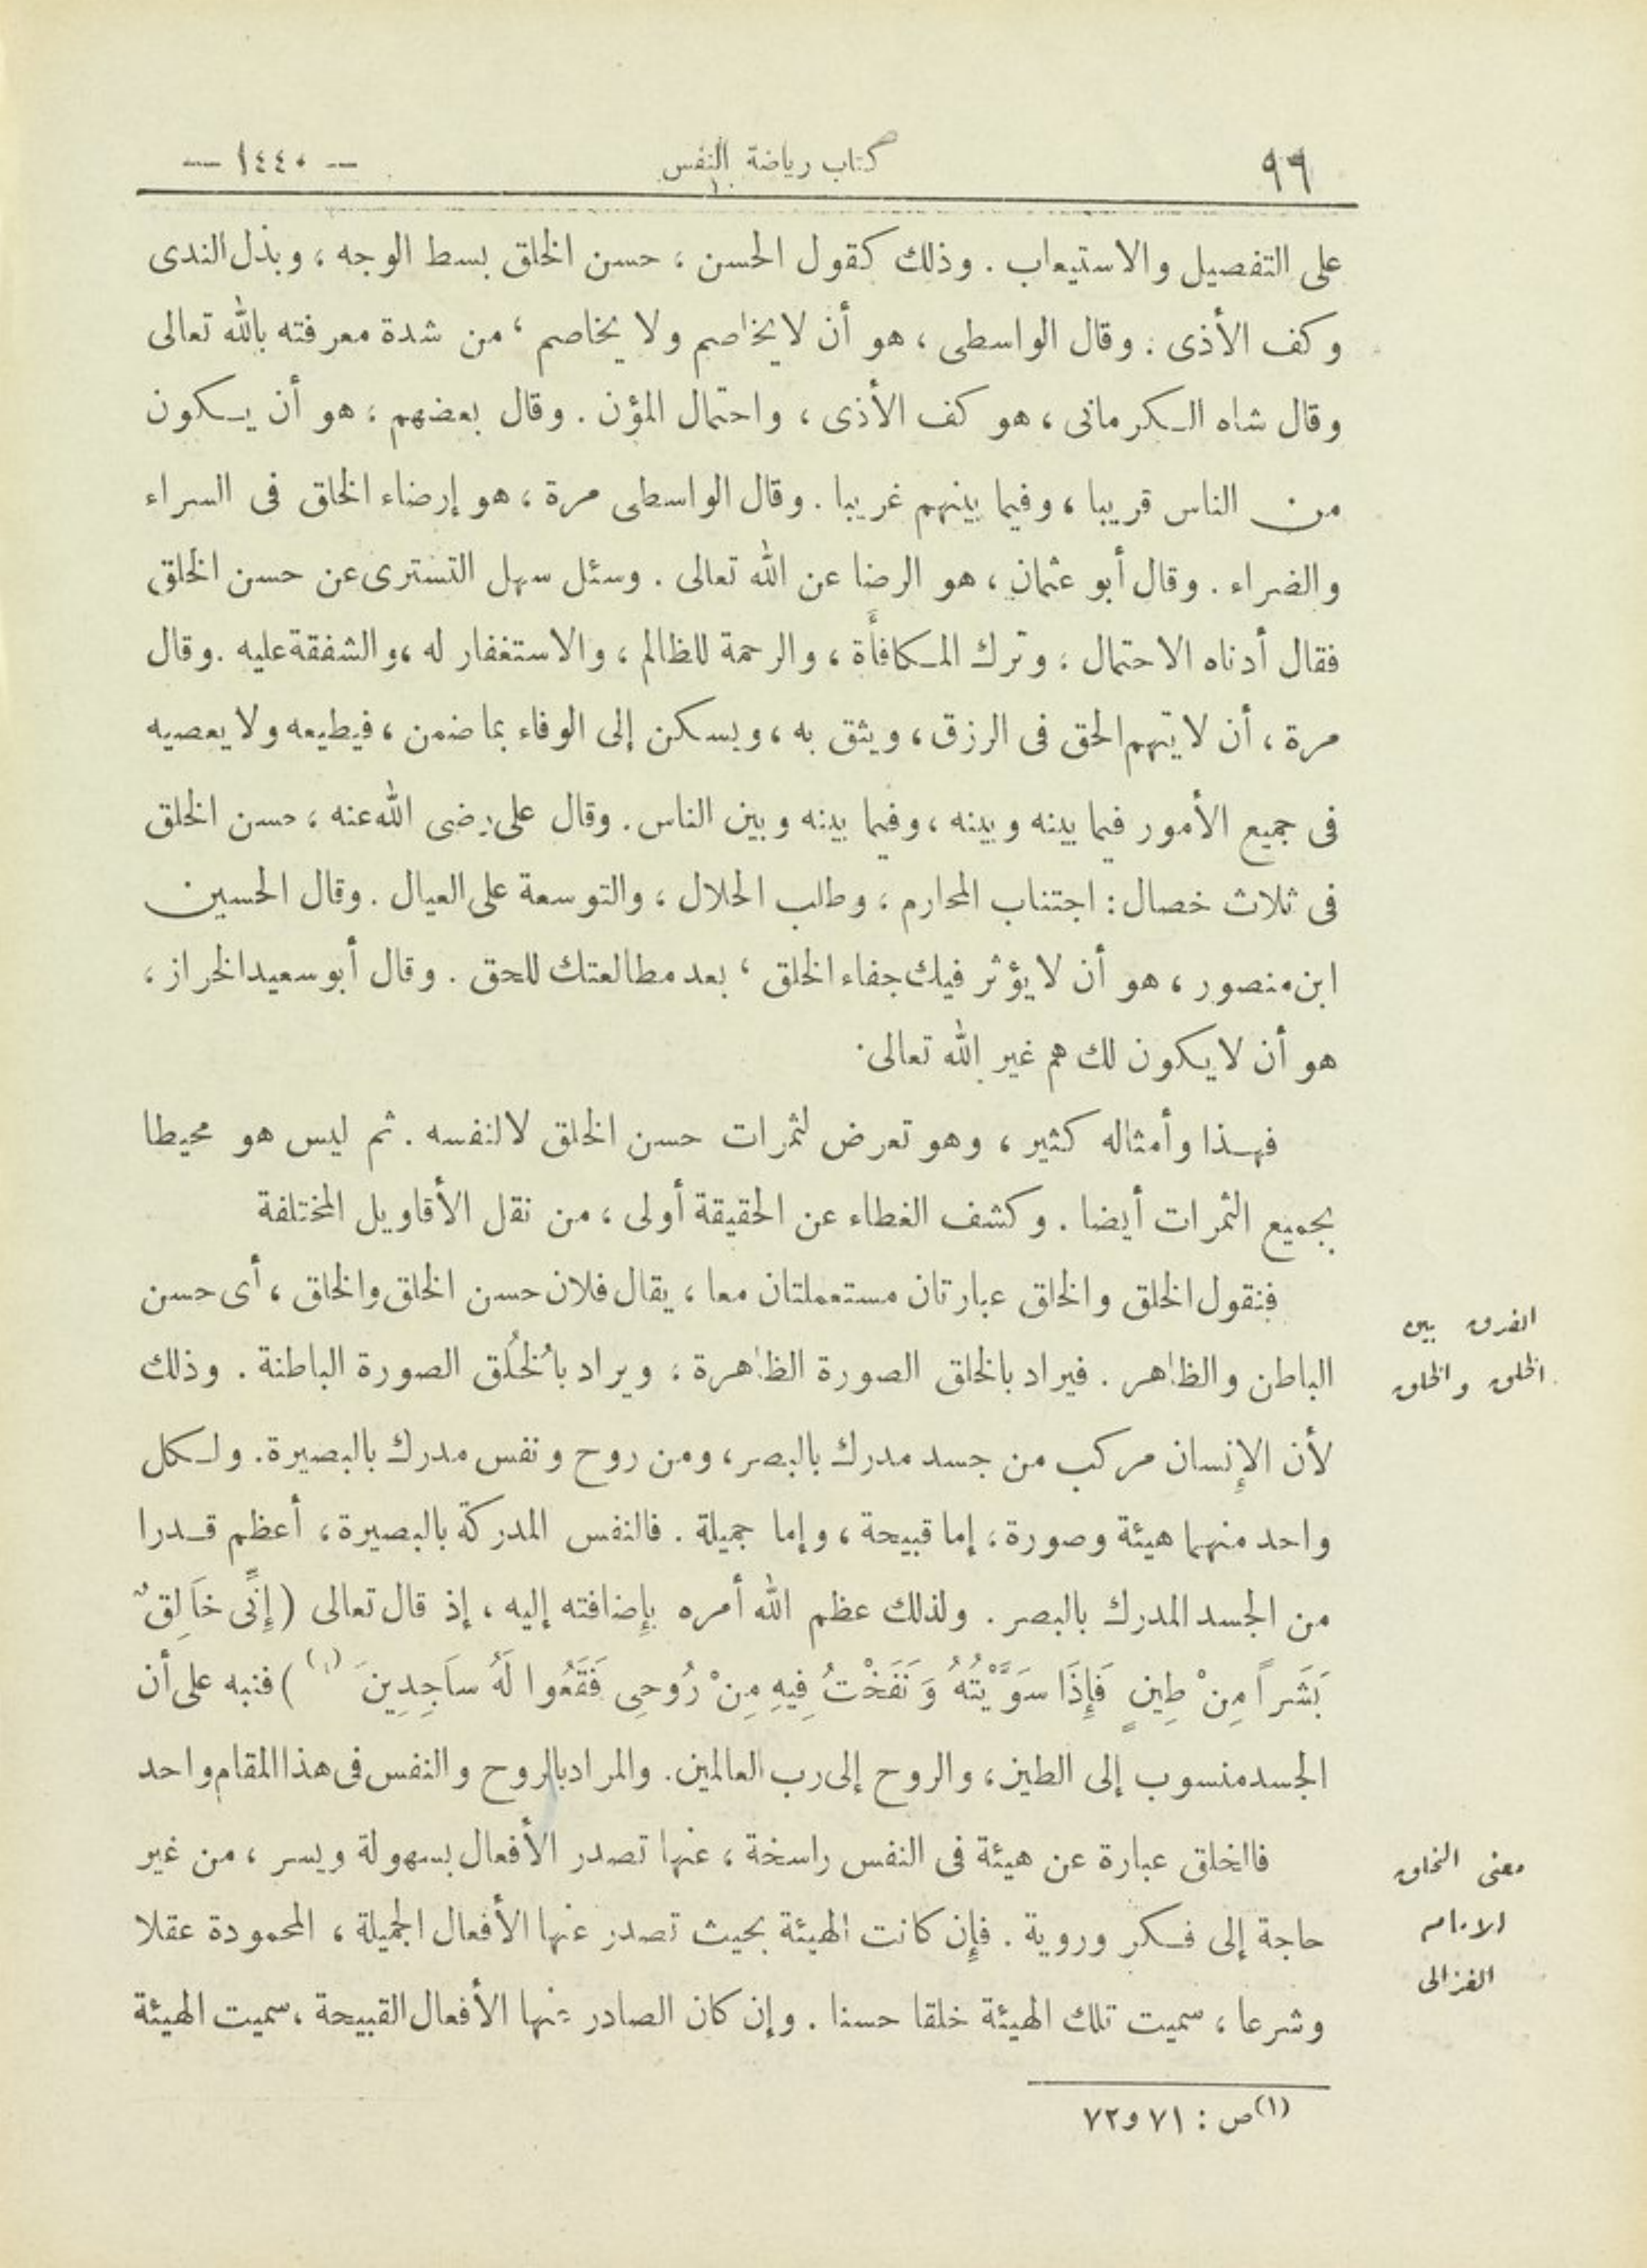 ٩٩ كتاب رياضة النفس — ١٤٤٠ —
على التفصيل والاستيعاب . وذلك كقول الحسن ، حسن الخلق بسط الوجه ، وبذل الندى
وكف الأذى . وقال الواسطى ، هو أن لا يخاصم ولا يخاصم ، من شدة معرفته بالله تعالى
وقال شاه الكرمانى ، هو كف الأذى ، واحتمال المؤن . وقال بعضهم ، هو أن يكون
من الناس قريبا ، وفيما بينهم غريبا . وقال الواسطى مرة ، هو إرضاء الخلق فى السراء
والضراء . وقال أبو عثمان ، هو الرضا عن الله تعالى . وسئل سهل التسترى عن حسن الخلق
فقال أدناه الاحتمال ، وترك المكافأة ، والرحمة للظالم ، والاستغفار له ، والشفقة عليه . وقال
مرة ، أن لا يتهم الحق فى الرزق ، ويثق به ، ويسكن إلى الوفاء بما ضمن ، فيطيعه ولا يعصيه
فى جميع الأمور فيما بينه وبينه ، وفيما بينه وبين الناس . وقال على رضى الله عنه ، حسن الخلق
فى ثلاث خصال : اجتناب المحارم ، وطلب الحلال ، والتوسعة على العيال . وقال الحسين
ابن منصور ، هو أن لا يؤثر فيك جفاء الخلق ، بعد مطالعتك للحق . وقال أبو سعيد الخراز ،
هو أن لا يكون لك هم غير الله تعالى .
فهذا وأمثاله كثير ، وهو تعرض لثمرات حسن الخلق لا لنفسه . ثم ليس هو محيطا
بجميع الثمرات أيضا . وكشف الغطاء عن الحقيقة أولى ، من نقل الأقاويل المختلفة
فنقول الخلق والخلق عبارتان مستعملتان معا ، يقال فلان حسن الخلق والخلق ، أى حسن
الفرق بين
الباطن والظاهر . فيراد بالخلق الصورة الظاهرة ، ويراد بالُخلُق الصورة الباطنة . وذلك
الخلق والخلق
لأن الإنسان مركب من جسد مدرك بالبصر ، ومن روح ونفس مدرك بالبصيرة . ولكل
واحد منهما هيئة وصورة ، إما قبيحة ، وإما جميلة . فالنفس المدركة بالبصيرة ، أعظم قدرا
من الجسد المدرك بالبصر . ولذلك عظم الله أمره بإضافته إليه ، إذ قال تعالى ( إِنِّى خَالِقٌ
بَشَراً مِنْ طِينٍ فَإِذَا سَوَّيْتُهُ وَنَفَخْتُ فِيهِ مِنْ رُوحِى فَقَعُوا لَهُ سَاجِدِينَ (١) ) فنبه على أن
الجسد منسوب إلى الطين ، والروح إلى رب العالمين . والمراد بالروح والنفس فى هذا المقام واحد
فالخلق عبارة عن هيئة فى النفس راسخة ، عنها تصدر الأفعال بسهولة ويسر ، من غير
معنى الخلق
حاجة إلى فكر وروية . فإن كانت الهيئة بحيث تصدر عنها الأفعال الجميلة ، المحمودة عقلا
الغزالى
وشرعا ، سميت تلك الهيئة خلقا حسنا . وإن كان الصادر عنها الأفعال القبيحة ، سميت الهيئة
(١) ص : ٧١ و ٧٢